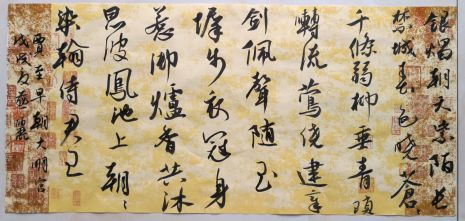 銀燭朝天紫陌長
禁城春色曉蒼〻
千條弱柳垂青瑣
轉流鶯繞建章
劍佩聲隨玉
墀步衣冠身
惹御爐香共沐
恩波鳳池上朝〻
染翰侍君王
賈至早朝大明宮
戊戌夏